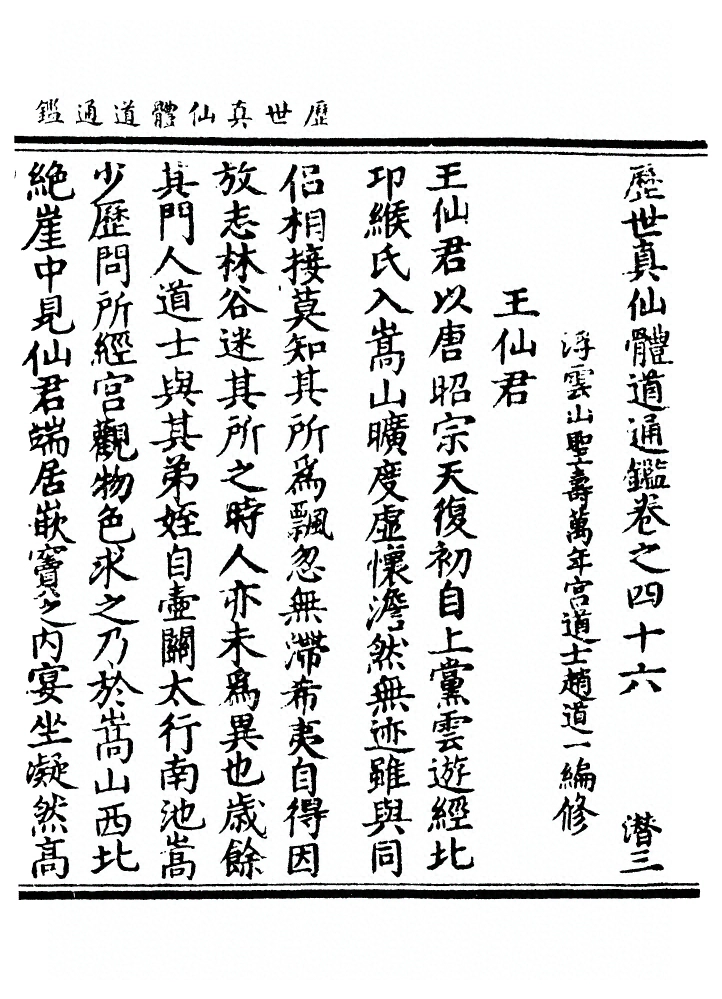 歷世真仙體道通鑑
歷世真仙體道通鑑卷之四十六 潛三
浮雲山聖壽萬年宮道士趙道一編修
王仙君
王仙君以唐昭宗天復初自上黨雲遊經北
邙緱氏入嵩山曠度虛懷澹然無迹雖與同
侶相接莫知其所為飄忽無滯希夷自得因
放志林谷迷其所之時人亦未為異也歲餘
其門人道士與其弟姪自壺關太行南池嵩
少歷問所經宮觀物色求之乃於嵩山西北
絕崖中見仙君端居嵌竇之內宴坐凝然高